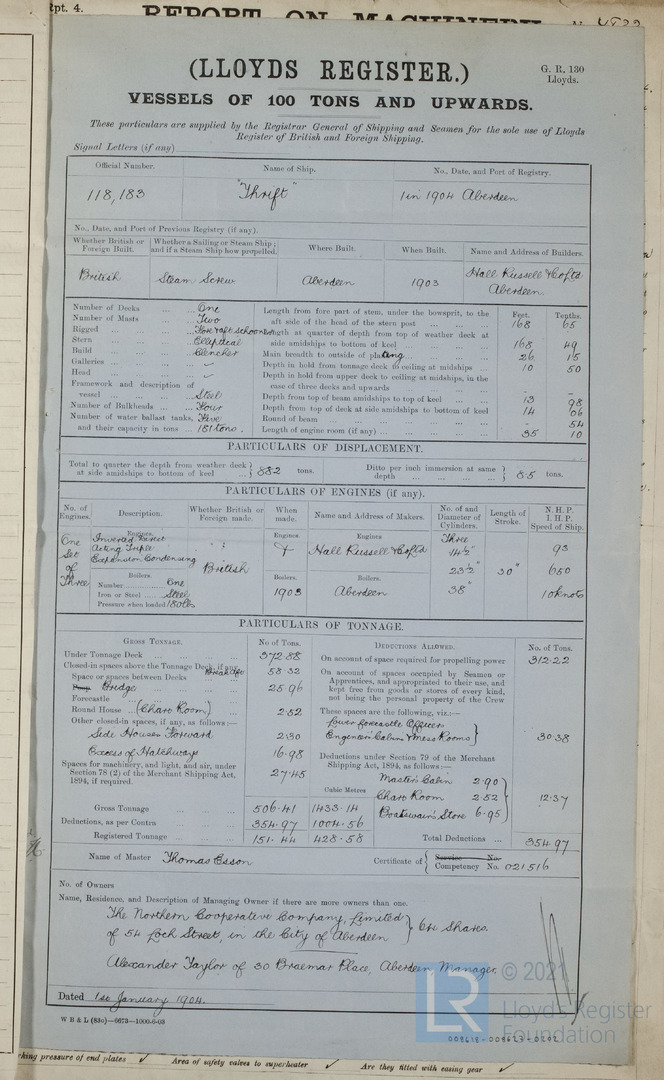 Rpt. 4.
REPORT ON MACHINERY
(LLOYDS REGISTER.)
G. R. 130
Lloyds.
VESSELS OF 100 TONS AND UPWARDS.
These particulars are supplied by the Registrar General of Shipping and Seamen for the sole use of Lloyds
Register of British and Foreign Shipping.
Signal Letters (if any)
Official Number. Name of Ship. No., Date, and Port of Registry.
118,183 "Thrift" 1 in 1904 Aberdeen
No., Date, and Port of Previous Registry (if any).
Whether British or Foreign Built. Whether a Sailing or Steam Ship; and if a Steam Ship how propelled. Where Built. When Built. Name and Address of Builders.
British Steam Screw Aberdeen 1903 Hall Russell & Co Ltd
Aberdeen.
Number of Decks One
Number of Masts Two
Rigged Fore & aft schooner
Stern Elliptical
Build Clencher
Galleries
Head
Framework and description of
vessel Steel
Number of Bulkheads Four
Number of water ballast tanks, Five
and their capacity in tons 181 tons.
Feet. Tenths.
Length from fore part of stem, under the bowsprit, to the
aft side of the head of the stern post 168 65
Length at quarter of depth from top of weather deck at
side amidships to bottom of keel 168 49
Main breadth to outside of plating 26 15
Depth in hold from tonnage deck to ceiling at midships 10 50
Depth in hold from upper deck to ceiling at midships, in the
case of three decks and upwards - -
Depth from top of beam amidships to top of keel 13 98
Depth from top of deck at side amidships to bottom of keel 14 06
Round of beam - 54
Length of engine room (if any) 35 10
PARTICULARS OF DISPLACEMENT.
Total to quarter the depth from weather deck at side amidships to bottom of keel 832 tons. Ditto per inch immersion at same depth 8.5 tons.
PARTICULARS OF ENGINES (if any).
No. of Engines. Description. Whether British or Foreign made. When made. Name and Address of Makers. No. of and Diameter of Cylinders. Length of Stroke. N.H.P. I.H.P. Speed of Ship.
One Set of Three
Engines.
Inverted Direct
Acting Triple
Expansion Condensing
Boilers.
Number One
Iron or Steel Steel
Pressure when loaded 180 lbs
British
Engines.
Boilers.
1903
Engines
Hall Russell & Co Ltd
Boilers.
Aberdeen
Three
14½"
23½"
38"
30"
93
650
10 knots
PARTICULARS OF TONNAGE.
GROSS TONNAGE. No. of Tons.
Under Tonnage Deck 372.88
Closed-in spaces above the Tonnage Deck, if any
Space or spaces between Decks Break Aft 58.32
Poop Bridge 25.96
Forecastle
Round House (Chart Room) 2.52
Other closed-in spaces, if any, as follows:—
Side Houses Forward 2.30
Excess of Hatchways 16.98
Spaces for machinery, and light, and air, under
Section 78 (2) of the Merchant Shipping Act,
1894, if required. 27.45
Cubic Metres
Gross Tonnage 506.41 1433.14
Deductions, as per Contra 354.97 1004.56
Registered Tonnage 151.44 428.58
DEDUCTIONS ALLOWED. No. of Tons.
On account of space required for propelling power 312.22
On account of spaces occupied by Seamen or
Apprentices, and appropriated to their use, and
kept free from goods or stores of every kind,
not being the personal property of the Crew
These spaces are the following, viz.:—
Lower forecastle Officers
Engineers Cabins & Mess Rooms 30.38
Deductions under Section 79 of the Merchant
Shipping Act, 1894, as follows:—
Master's Cabin 2.90
Chart Room 2.52
Boatswain's Store 6.95
12.37
Total Deductions 354.97
Name of Master Thomas Esson
Certificate of Service No.
Competency No. 021516
No. of Owners
Name, Residence, and Description of Managing Owner if there are more owners than one.
The Northern Cooperative Company, Limited
of 54 Loch Street, in the City of Aberdeen } 64 Shares.
Alexander Taylor of 30 Braemar Place, Aberdeen, Manager.
Dated 1st January 1904.
W B & L (83o)—6673—1000-6-03
LR
© 2021
Lloyd's Register
Foundation
008618-008627-0202
king pressure of end plates Area of safety valves to superheater Are they fitted with easing gear